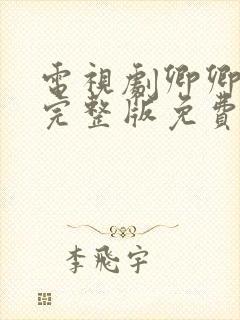 電視劇卿卿
完整版免費
李飛宇